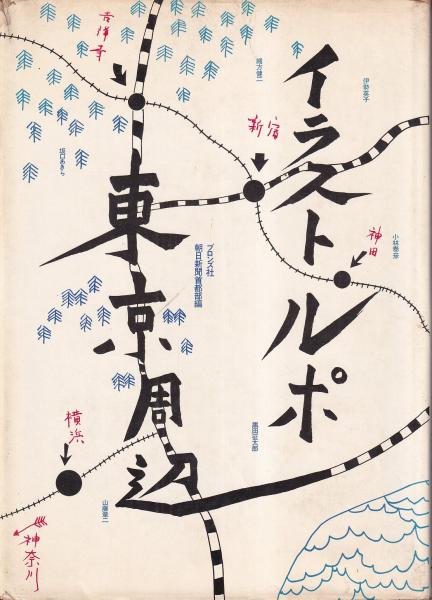 イラスト・ルポ
東京周辺
ブロンズ社
朝日新聞首都部編
伊勢英子
緒方健二
小林泰彦
黒田征太郎
坂口あきら
山藤章二
吉祥寺
新宿
神田
横浜
神奈川